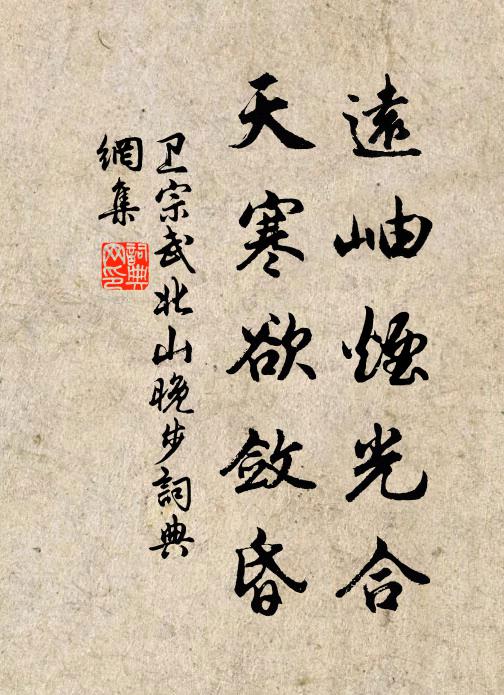 遠岫煙光合
天寒欲斂昏
卫宗武北山晚步詞典
網集
詞典
网印